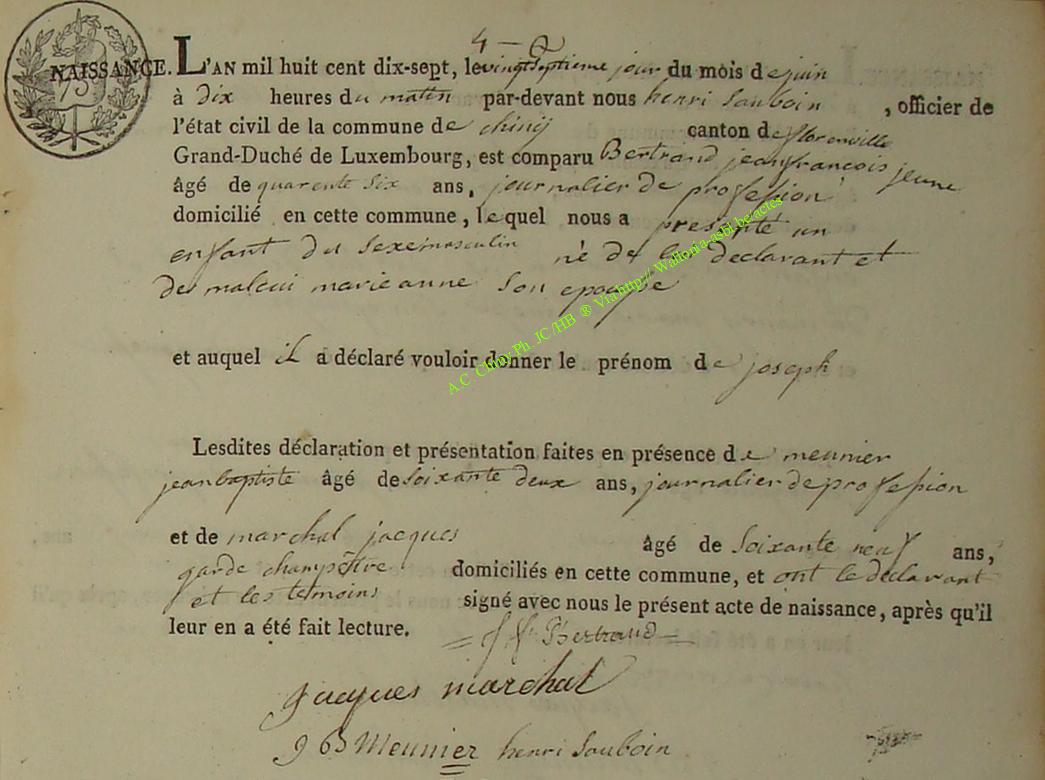 4 - 
NAISSANCE. L'AN mil huit cent dix-sept, le vingtseptieme jour du mois de juin
à dix heures du matin par-devant nous henri Sauboin , officier de
l'état civil de la commune de chiny canton de florenville
Grand-Duché de Luxembourg, est comparu Bertrand jean francois jeune
âgé de quarente Six ans, journalier de profession
domicilié en cette commune, le quel nous a presenté un
enfant du Sexe masculin né de lui declarant et
de marie anne Son epouse
et auquel il a déclaré vouloir donner le prénom de joseph
Lesdites déclaration et présentation faites en présence de meunier
jean baptiste âgé de Soixante deux ans, journalier de profession
et de marchal jacques âgé de Soixante neuf ans,
garde champêtre domiciliés en cette commune, et ont le déclarant
et les temoins signé avec nous le présent acte de naissance, après qu'il
leur en a été fait lecture. Bertrand
jacques marchal
Meunier henri Sauboin
A.C Chiny Ph. JC /HB ® Via http:// Wallonia-asbl.be/actes